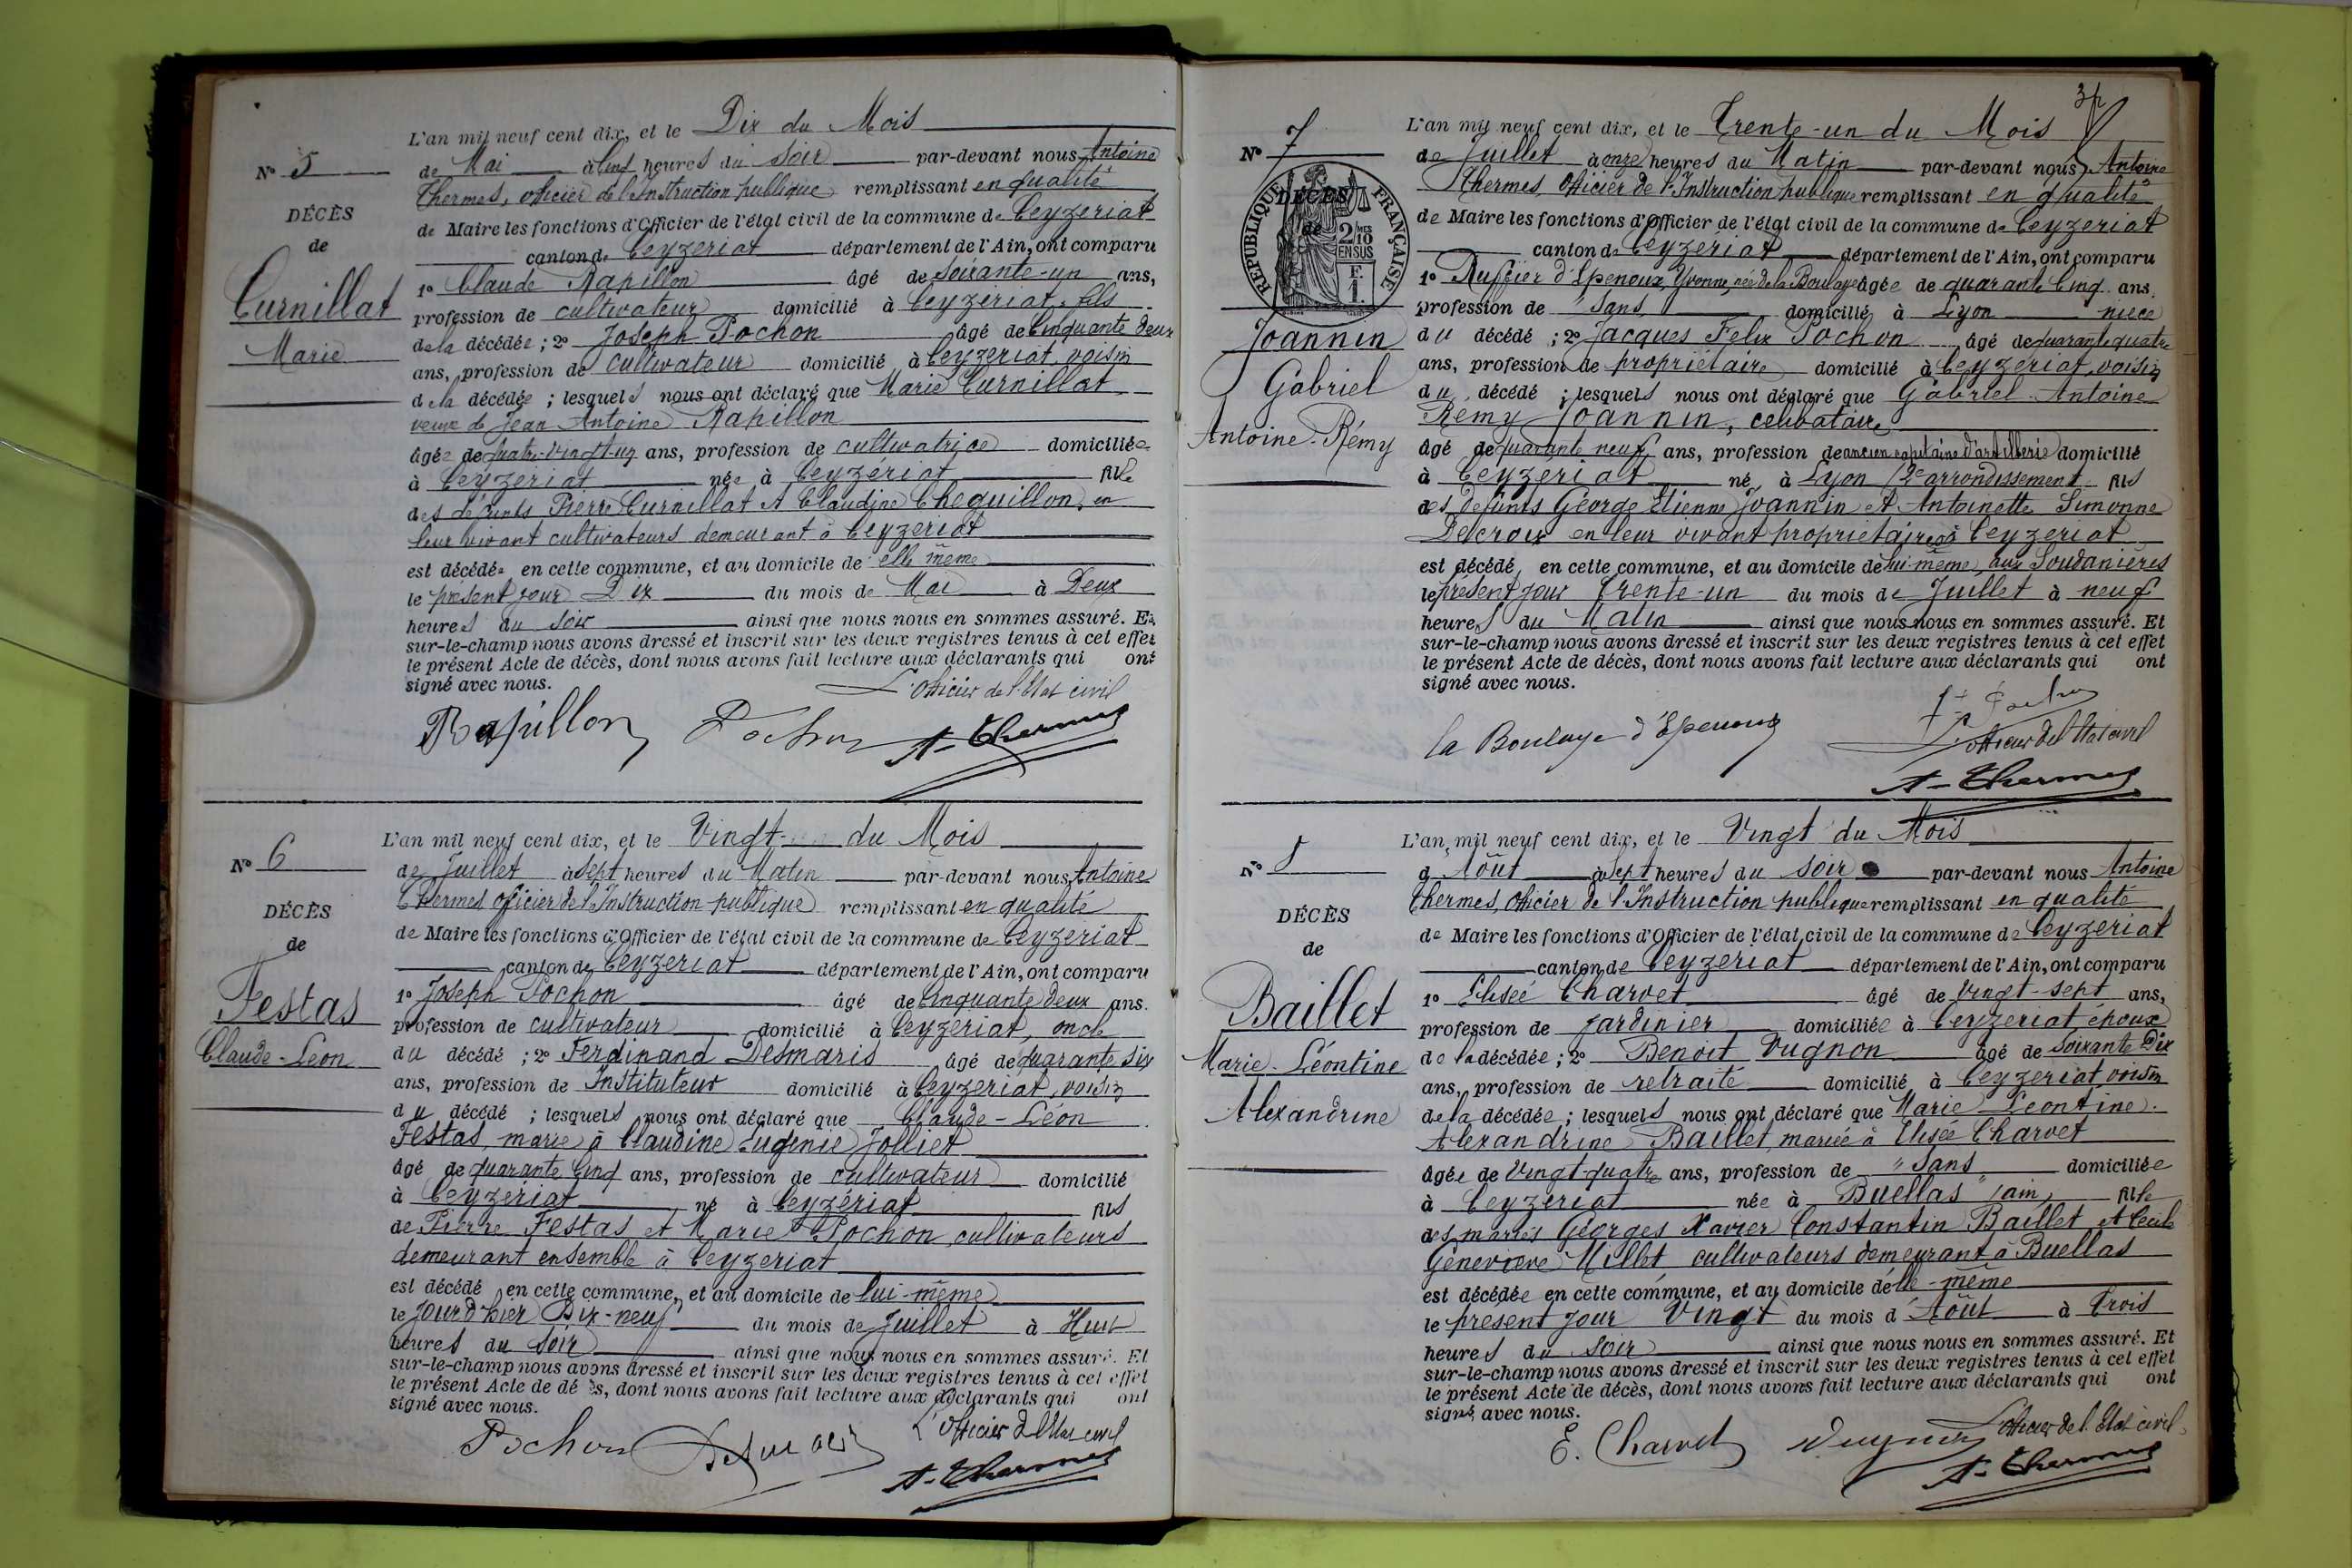 L'an mil neuf cent dix, et le Dix du Mois
N° 5
de Mai à Cinq heures du Soir par-devant nous Antoine
Thermes, officier de l'Instruction publique remplissant en qualité
DÉCÈS
de Maire les fonctions d'Officier de l'état civil de la commune de Ceyzeriat
de
canton de Ceyzeriat département de l'Ain, ont comparu
Curnillat
1° Claude Rapillon âgé de Soixante-un ans,
profession de cultivateur domicilié à Ceyzeriat, fils
Marie
de la décédée ; 2° Joseph Pochon âgé de Cinquante deux
ans, profession de cultivateur domicilié à Ceyzeriat, voisin
de la décédée ; lesquels nous ont déclaré que Marie Curnillat
veuve de Jean Antoine Rapillon
âgée de quatre-vingt-un ans, profession de cultivatrice domiciliée
à Ceyzeriat née à Ceyzeriat fille
des défunts Pierre Curnillat et Claudine Chequillon, en
leur vivant cultivateurs demeurant à Ceyzeriat
est décédée en cette commune, et au domicile de elle même
le présent jour Dix du mois de Mai à Deux
heures du soir ainsi que nous nous en sommes assuré. Et
sur-le-champ nous avons dressé et inscrit sur les deux registres tenus à cet effet
le présent Acte de décès, dont nous avons fait lecture aux déclarants qui ont
signé avec nous.
L'officier de l'Etat civil
Rapillon Pochon A. Thermes
L'an mil neuf cent dix, et le Vingt du Mois
N° 6
de Juillet à sept heures du Matin par-devant nous Antoine
Thermes officier de l'Instruction publique remplissant en qualité
DÉCÈS
de Maire les fonctions d'Officier de l'état civil de la commune de Ceyzeriat
de
canton de Ceyzeriat département de l'Ain, ont comparu
Festas
1° Joseph Pochon âgé de Cinquante deux ans.
profession de cultivateur domicilié à Ceyzeriat, oncle
Claude-Léon
du décédé ; 2° Ferdinand Desmaris âgé de quarante six
ans, profession de Instituteur domicilié à Ceyzeriat, voisin
du décédé ; lesquels nous ont déclaré que Claude-Léon
Festas, marié à Claudine Eugenie Jolliet
âgé de quarante Cinq ans, profession de cultivateur domicilié
à Ceyzeriat né à Ceyzériat fils
de Pierre Festas et Marie Pochon, cultivateurs
demeurant ensemble à Ceyzeriat
est décédé en cette commune, et au domicile de lui-même
le jour d'hier Dix-neuf du mois de Juillet à Huit
heures du soir ainsi que nous nous en sommes assuré. Et
sur-le-champ nous avons dressé et inscrit sur les deux registres tenus à cet effet
le présent Acte de dé ès, dont nous avons fait lecture aux déclarants qui ont
signé avec nous.
L'officier de l'Etat civil
Pochon Desmaris
A. Thermes
L'an mil neuf cent dix, et le Trente-un du Mois
N° 7
de Juillet à onze heures du Matin par-devant nous Antoine
Thermes, officier de l'Instruction publique remplissant en qualité
DÉCÈS
de
RÉPUBLIQUE FRANÇAISE
2 MES 10 EN SUS
F. 1.
de Maire les fonctions d'Officier de l'état civil de la commune de Ceyzeriat
canton de Ceyzeriat département de l'Ain, ont comparu
1° Ruffier d'Epenoux, Yvonne, née de la Boulaye âgée de quarante Cinq ans.
profession de "Sans" domicilié à Lyon niece
Joannin
du décédé ; 2° Jacques Felix Pochon âgé de quarante quatre
ans, profession de propriétaire domicilié à Ceyzeriat, voisin
Gabriel
du décédé ; lesquels nous ont déclaré que Gabriel Antoine
Rémy Joannin, célibataire
Antoine-Rémy
âgé de quarante neuf ans, profession de ancien capitaine d'artillerie domicilié
à Ceyzériat né à Lyon (2e arrondissement) fils
des défunts George Etienne Joannin et Antoinette Simonne
Delcroix en leur vivant propriétaires à Ceyzeriat
est décédé en cette commune, et au domicile de lui-même, aux Soudanières
le présent jour Trente-un du mois de Juillet à neuf
heures du Matin ainsi que nous nous en sommes assuré. Et
sur-le-champ nous avons dressé et inscrit sur les deux registres tenus à cet effet
le présent Acte de décès, dont nous avons fait lecture aux déclarants qui ont
signé avec nous.
la Boulaye d'Epenoux
L'officier de l'Etat civil
A. Thermes
L'an mil neuf cent dix, et le Vingt du Mois
N° 8
d'Août à Sept heures du soir par-devant nous Antoine
Thermes, officier de l'Instruction publique remplissant en qualité
DÉCÈS
de Maire les fonctions d'Officier de l'état civil de la commune de Ceyzeriat
de
canton de Ceyzeriat département de l'Ain, ont comparu
Baillet
1° Elisée Charvet âgé de Vingt-sept ans,
profession de jardinier domiciliée à Ceyzeriat époux
Marie-Léontine
de la décédée ; 2° Benoit Vugnon âgé de Soixante Dix
ans, profession de retraité domicilié à Ceyzeriat, voisin
Alexandrine
de la décédée ; lesquels nous ont déclaré que Marie Léontine
Alexandrine Baillet, mariée à Elisée Charvet
âgée de Vingt-quatre ans, profession de "Sans domiciliée
à Ceyzeriat née à Buellas (ain) fille
des mariés Georges Xavier Constantin Baillet et Cecile
Geneviève Millet cultivateurs demeurant à Buellas
est décédée en cette commune, et au domicile de elle-même
le présent jour Vingt du mois d'Août à Trois
heures du soir ainsi que nous nous en sommes assuré. Et
sur-le-champ nous avons dressé et inscrit sur les deux registres tenus à cet effet
le présent Acte de décès, dont nous avons fait lecture aux déclarants qui ont
signé avec nous.
E. Charvet Vugnon L'officier de l'Etat civil
A. Thermes